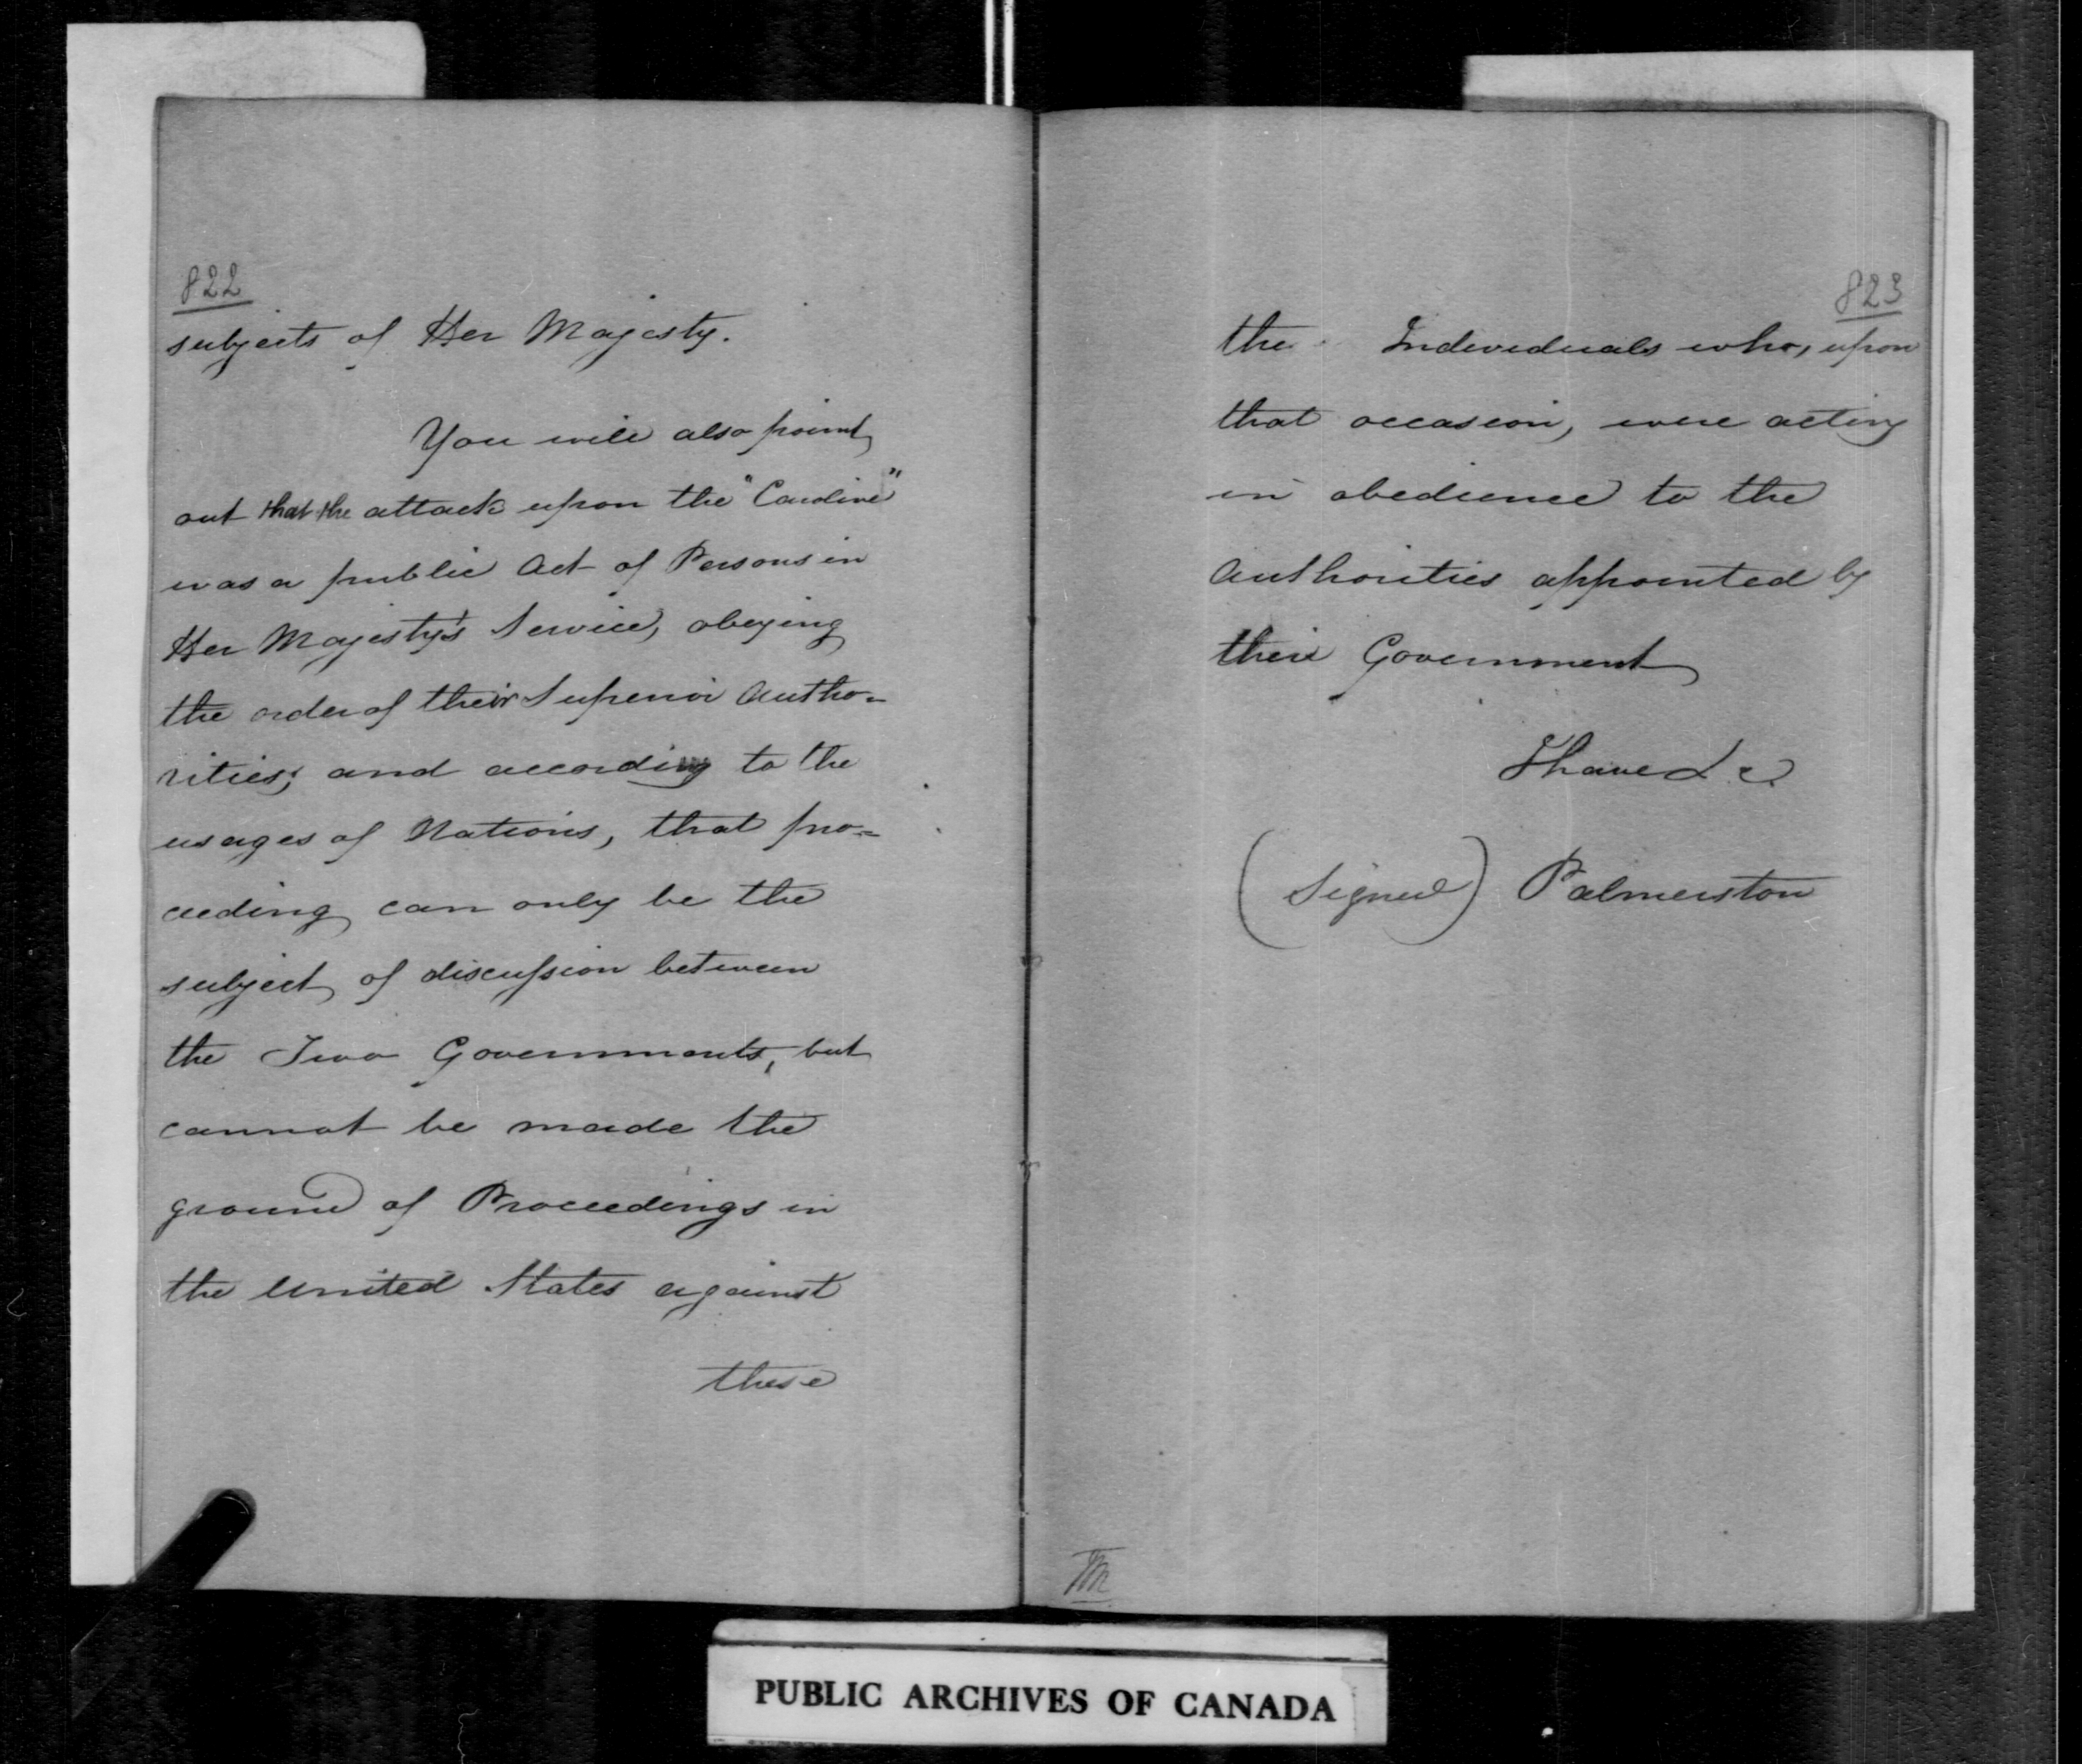 822
subjects of Her Majesty.
You will also point
out that the attack upon the "Caroline"
was a public Act of Persons in
Her Majesty's Service, obeying
the order of their Superior Autho=
rities; and according to the
usages of Nations, that pro=
ceeding can only be the
subject of discussion between
the Two Governments, but
cannot be made the
ground of Proceedings in
the United States against
these
823
the Individuals who, upon
that occasion, were acting
in obedience to the
Authorities appointed by
their Government
I have &c
(Signed) Palmerston
PUBLIC ARCHIVES OF CANADA